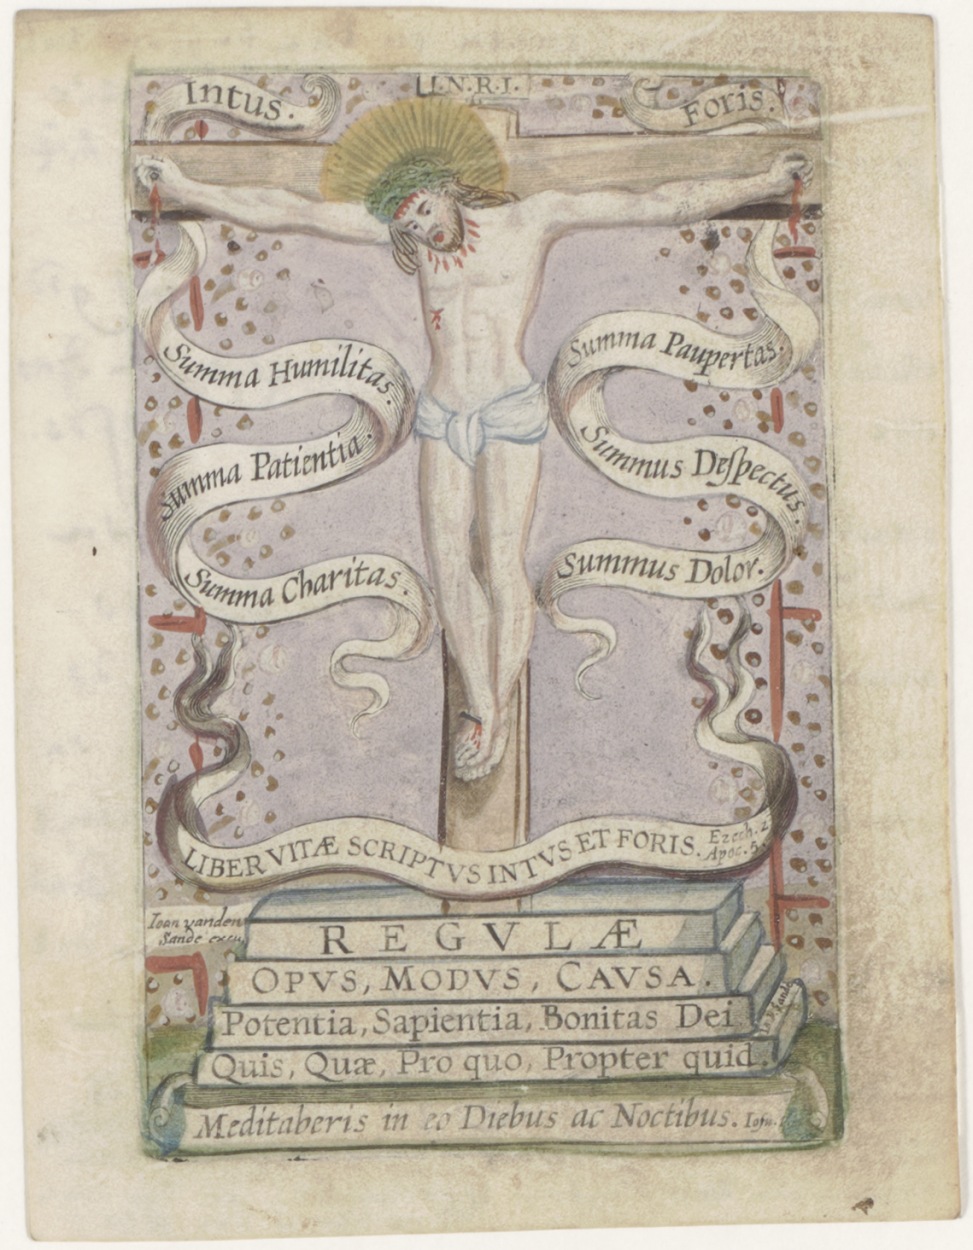 Intus.
I.N.R.I.
Foris.
Summa Humilitas.
Summa Patientia.
Summa Charitas.
Summa Paupertas.
Summus Despectus.
Summus Dolor.
LIBER VITÆ SCRIPTVS INTVS ET FORIS. Ezech. 2
Apoc. 5.
Ioan vanden
Sande excu
REGVLÆ
OPVS, MODVS, CAVSA.
Potentia, Sapientia, Bonitas Dei
Quis, Quæ, Pro quo, Propter quid.
Meditaberis in eo Diebus ac Noctibus. Iosu.